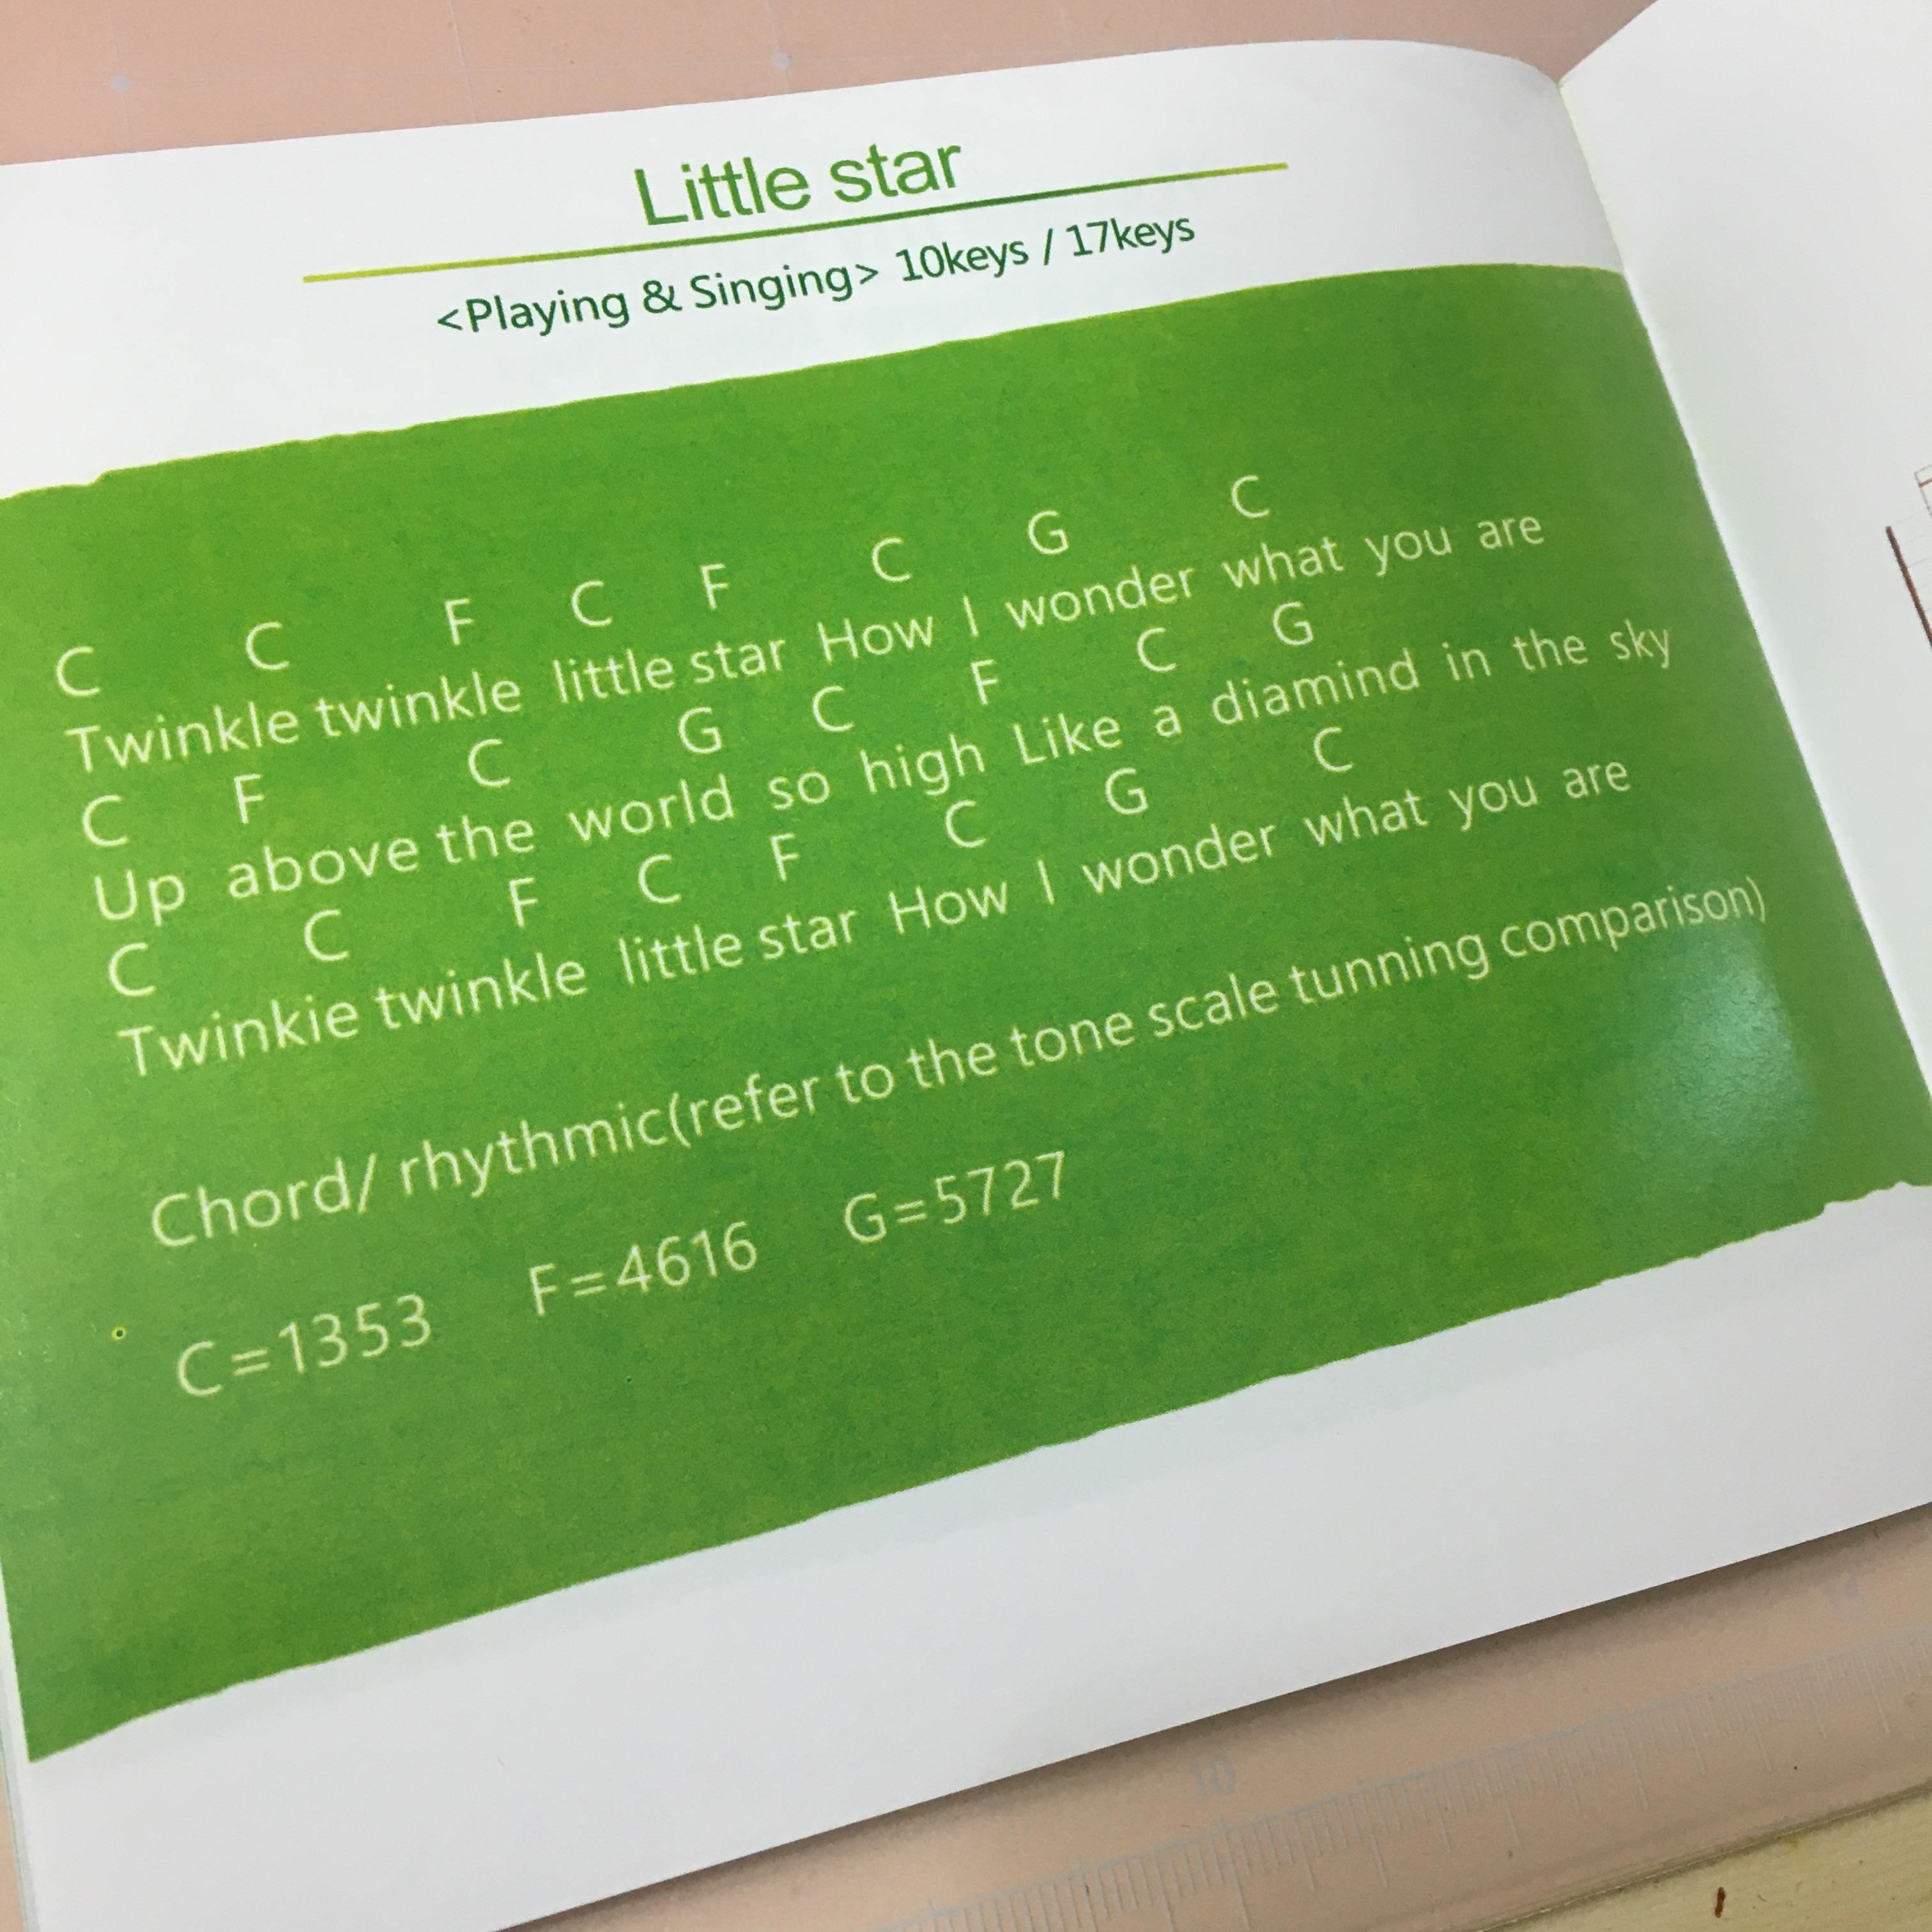 Little star
<Playing & Singing> 10keys / 17keys
C C F C F C G C
Twinkle twinkle little star How I wonder what you are
C F C G C F C G
Up above the world so high Like a diamind in the sky
C C F C F C G C
Twinkie twinkle little star How I wonder what you are
Chord/ rhythmic(refer to the tone scale tunning comparison)
C=1353 F=4616 G=5727
10